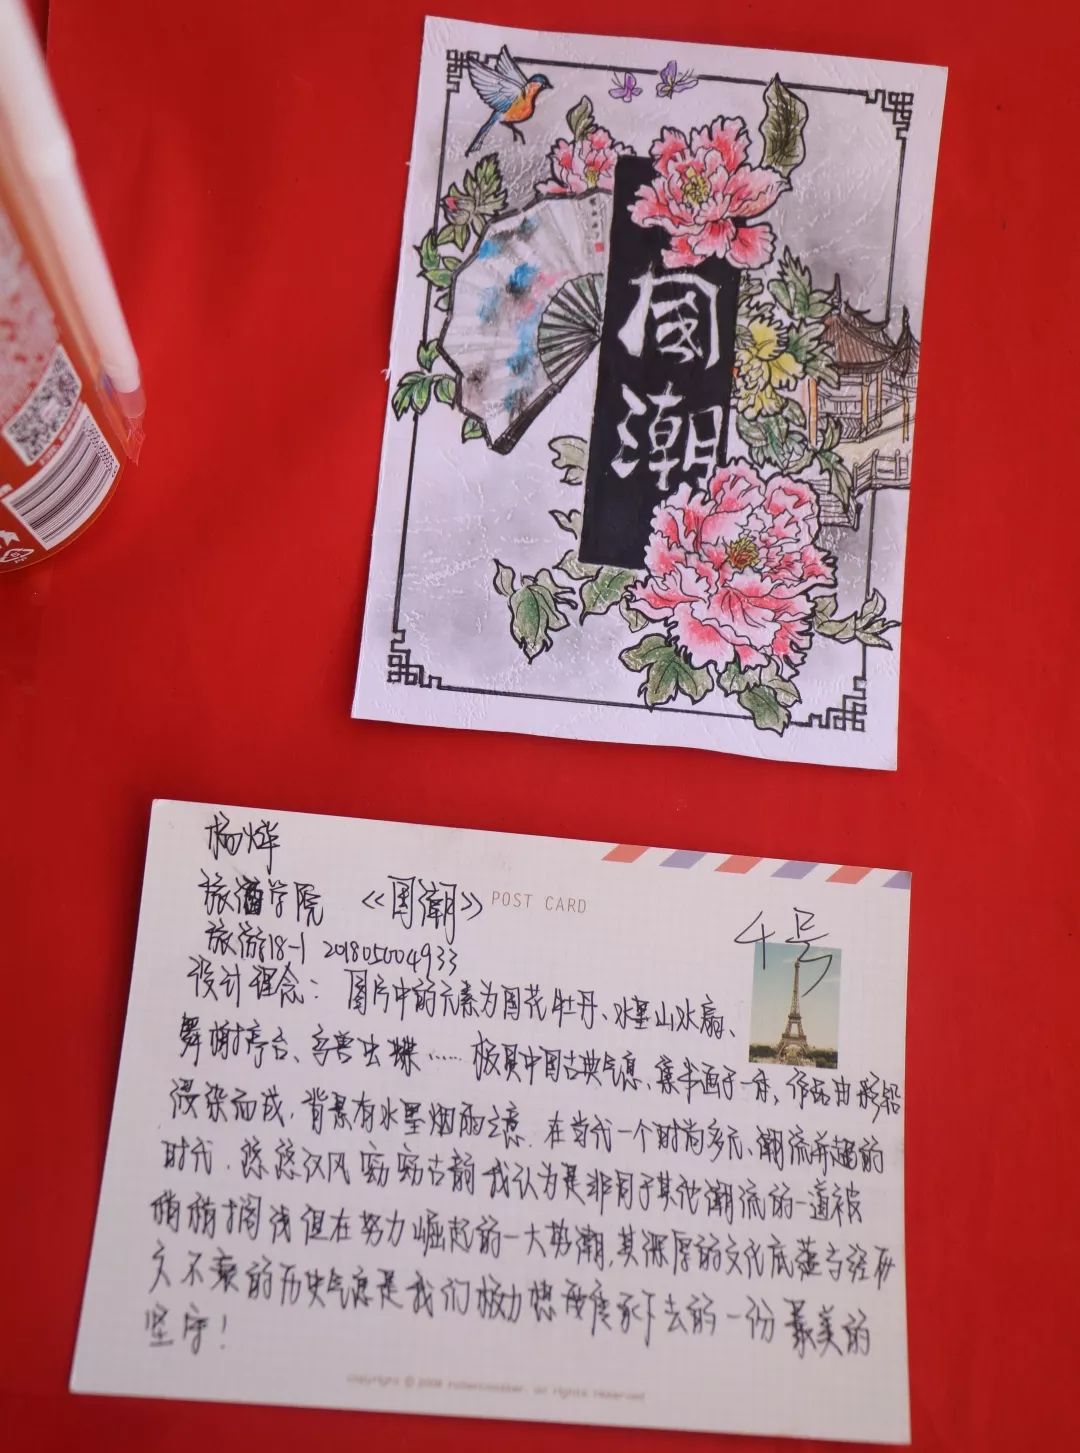 国潮
杨烨
旅酒学院 《国潮》
POST CARD
4号
旅游18-1 201805004933
设计理念： 图片中的元素为国花牡丹、水墨山水扇、
舞榭亭台、鸟兽虫蝶…… 极具中国古典气息、集书画于一身，作品由彩铅
浸染而成，背景有水墨烟雨之意. 在当代一个时尚多元、潮流并趋的
时代、悠悠汉风 窈窈古韵 我认为是非同于其他潮流的一道被
稍稍搁浅但在努力崛起的一大势潮，其深厚的文化底蕴与经
久不衰的历史气息是我们极力想要传承下去的一份最美的
坚守！
all rights reserved